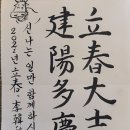 立春大吉
建陽多慶
신나는 일만 함께하시
2021년 立春. 李韓